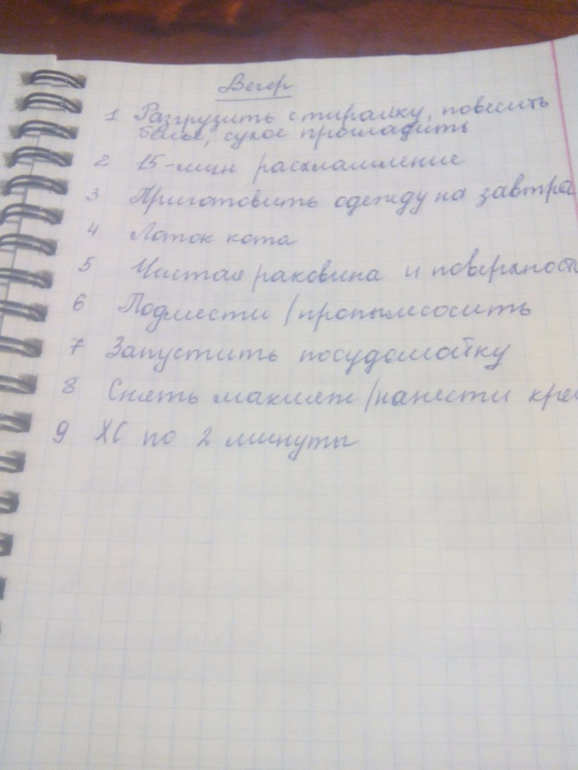 Вечер
1 Разгрузить стиралку, повесить
белье, сухое прогладить
2 15-мин расхламление
3 Приготовить одежду на завтра
4 Лоток кота
5 Чистая раковина и поверхност
6 Подмести/пропылесосить
7 Запустить посудомойку
8 Снять макияж/нанести кре
9 ХС по 2 минуты